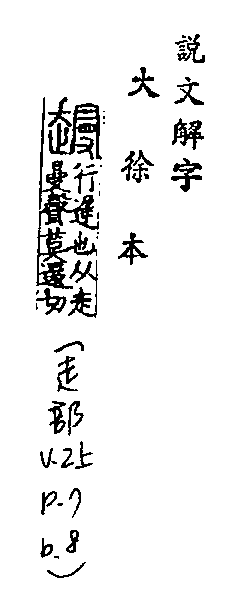 説文解字
大徐本
行遲也从走
曼聲莫還切
(走部
V.2上
P.7
b.8)